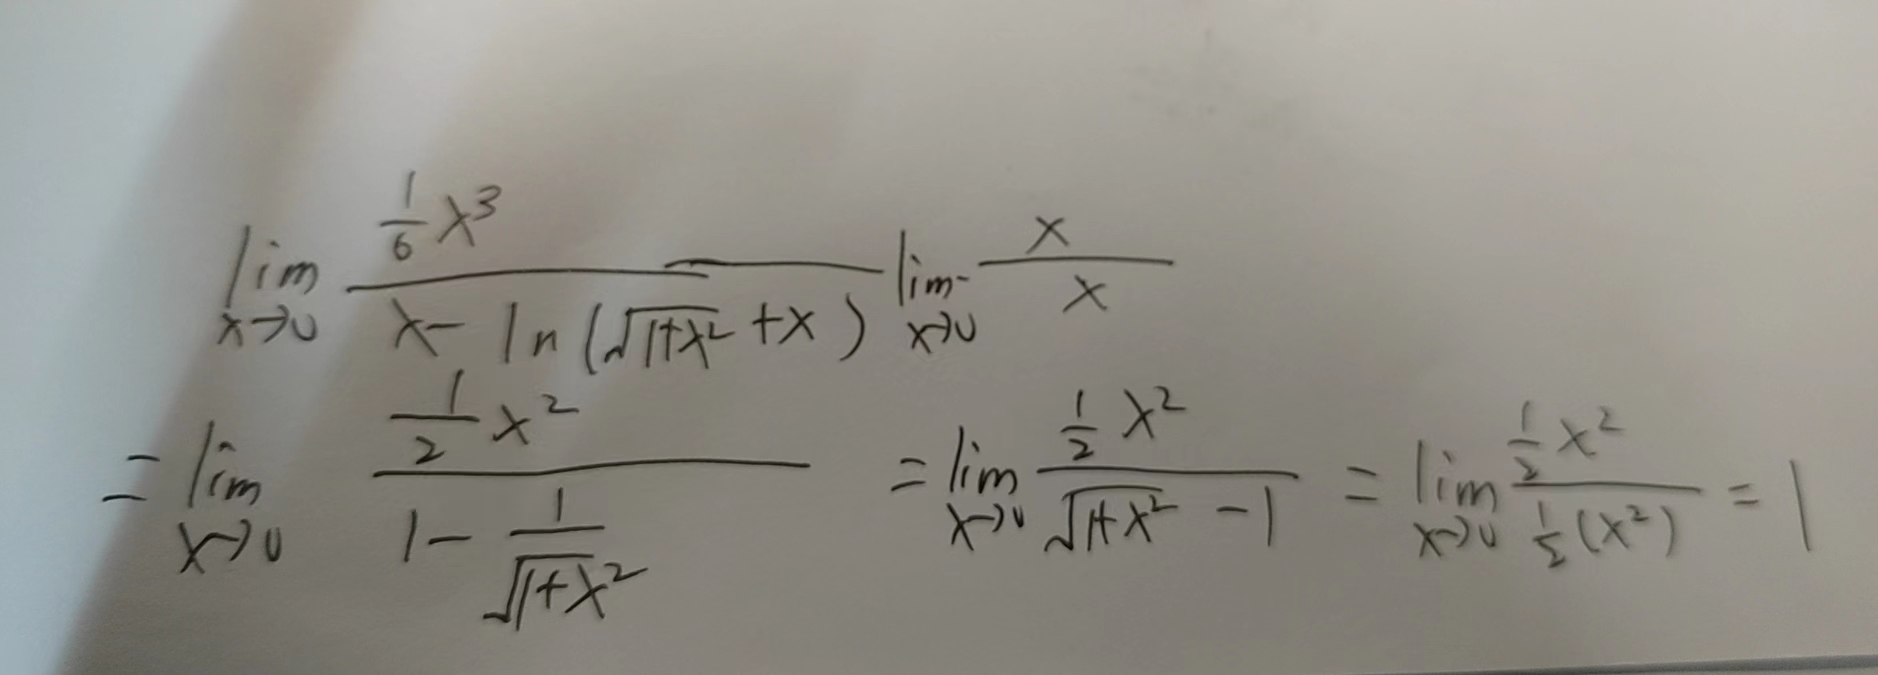 lim x→0 (1/6 x³) / (x − ln(√(1+x²) + x)) lim x→0 x/x
= lim x→0 (1/2 x²) / (1 − 1/√(1+x²)) = lim x→0 (1/2 x²) / (√(1+x²) − 1) = lim x→0 (1/2 x²) / (1/2 (x²)) = 1